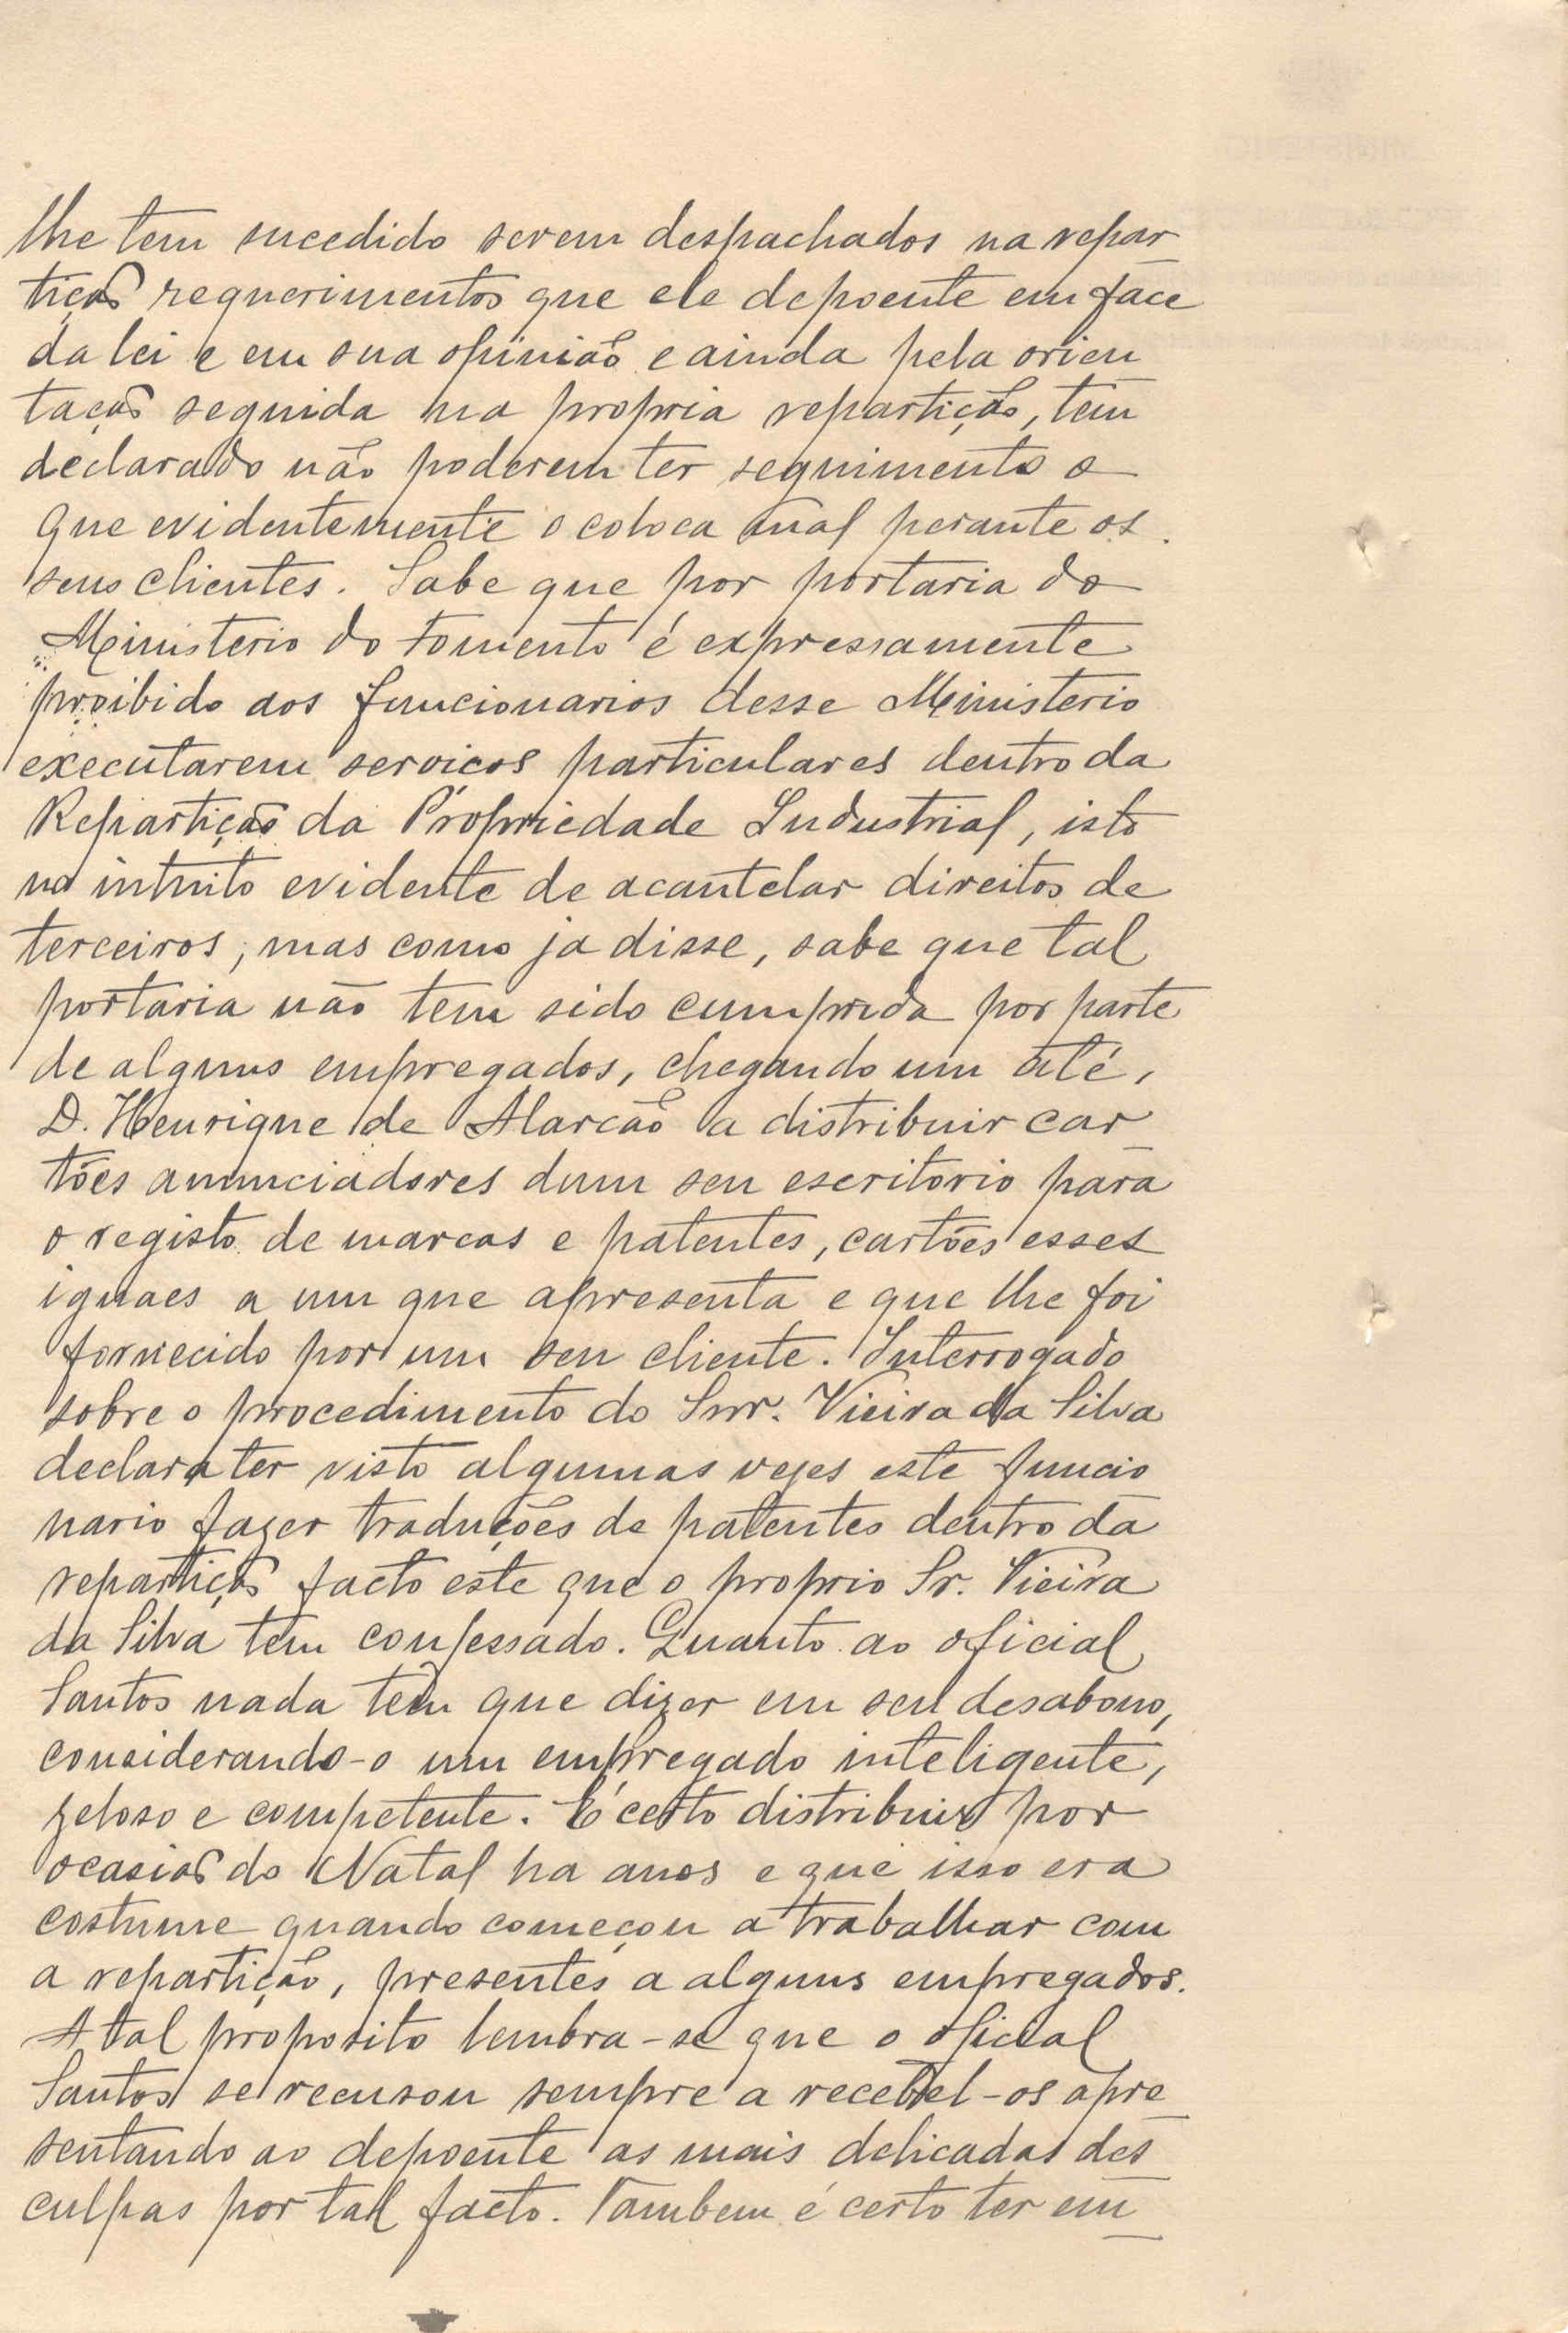 lhe tem sucedido serem despachados na repar
tição requerimentos que ele depoente em face
da lei e em sua opinião e ainda pela orien
tação seguida na propria repartição, tem
declarado não poderem ter seguimento o
que evidentemente o coloca mal perante os
seus clientes. Sabe que por portaria do
Ministerio do Fomento é expressamente
proibido aos funcionarios desse Ministerio
executarem serviços particulares dentro da
Repartição da Propriedade Industrial, isto
no intuito evidente de acautelar direitos de
terceiros, mas como ja disse, sabe que tal
portaria não tem sido cumprida por parte
de alguns empregados, chegando um até,
D. Henrique de Alarcão a distribuir car
tões anunciadores dum seu escritorio para
o registo de marcas e patentes, cartões esses
iguaes a um que apresenta e que lhe foi
fornecido por um seu cliente. Interrogado
sobre o procedimento do Snr. Vieira da Silva
declara ter visto algumas vezes este funcio
nario fazer traduções de patentes dentro da
repartição facto este que o proprio Sr. Vieira
da Silva tem confessado. Quanto ao oficial
Santos nada tem que dizer em seu desabono,
considerando-o um empregado inteligente,
zeloso e competente. É certo distribuir por
ocasião do Natal ha anos e que isso era
costume quando começou a trabalhar com
a repartição, presentes a alguns empregados.
A tal proposito lembra-se que o oficial
Santos se recusou sempre a recebel-os apre
sentando ao depoente as mais delicadas des
culpas por tal facto. Tambem é certo ter em